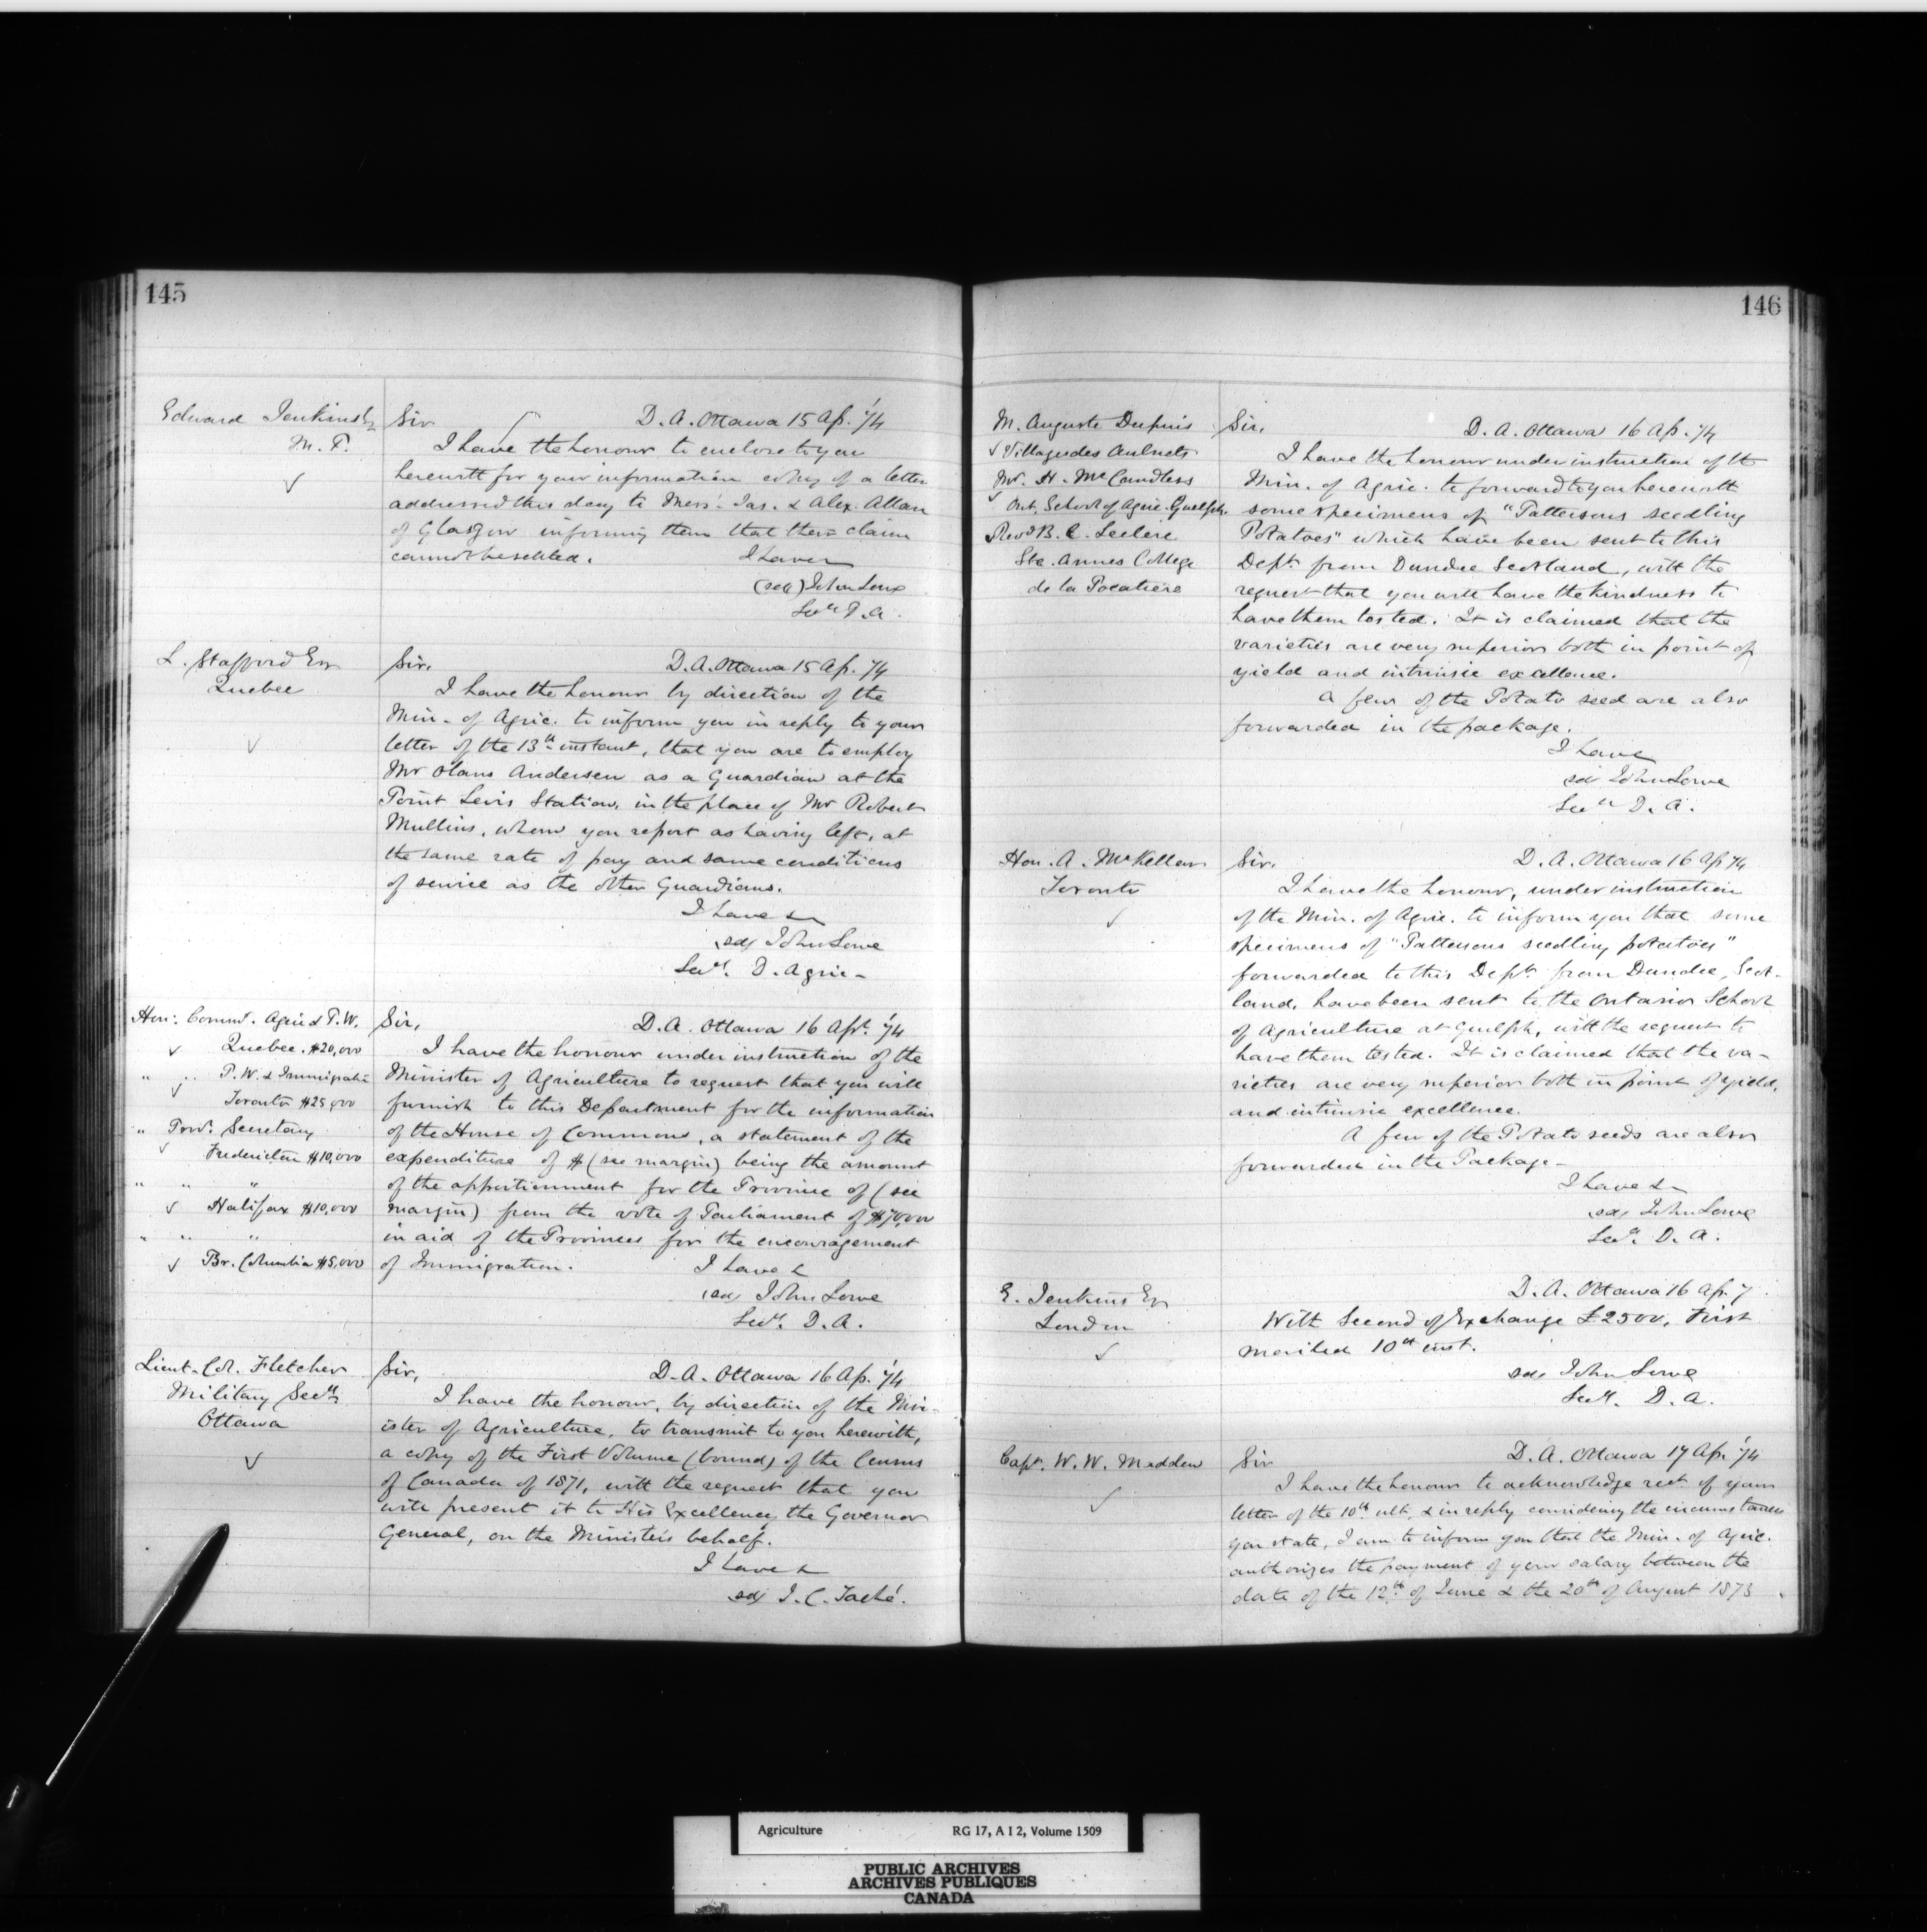 145
Edward Jenkins Esq
M. P.
Sir, D. A. Ottawa 15 Ap. '74
I have the honour to enclose to you
herewith for your information copy of a letter
addressed this day to Mess. Jas. & Alex. Allan
of Glasgow informing them that their claim
cannot be settled. I have
(sd) John Lowe
Secy D. A.
L. Stafford Esq
Quebec
Sir, D. A. Ottawa 15 Ap. '74
I have the honour by direction of the
Min. of Agric. to inform you in reply to your
letter of the 13th instant, that you are to employ
Mr Olaus Andersen as a Guardian at the
Point Levis Station, in the place of Mr Robert
Mullins, whom you report as having left, at
the same rate of pay and same conditions
of service as the other Guardians.
I have &
sd/ John Lowe
Secy. D. Agric-
Hon: Commr. Agric & P. W.
Quebec. $20,000
" " P. W. & Immigratn
Toronto $25,000
" Prov. Secretary
Fredericton $10,000
" " "
Halifax $10,000
" " "
Br. Columbia $5,000
Sir, D. A. Ottawa 16 Apr. '74
I have the honour under instruction of the
Minister of Agriculture to request that you will
furnish to this Department for the information
of the House of Commons, a statement of the
expenditure of $ (see margin) being the amount
of the apportionment for the Province of (see
margin) from the vote of Parliament of $70,000
in aid of the Provinces for the encouragement
of Immigration. I have &
sd/ John Lowe
Secy. D. A.
Lieut-Col. Fletcher
Military Secy
Ottawa
Sir, D. A. Ottawa 16 Ap. '74
I have the honour, by direction of the Min-
ister of Agriculture, to transmit to you herewith,
a copy of the First Volume (bound) of the Census
of Canada of 1871, with the request that you
will present it to His Excellency the Governor
General, on the Minister's behalf.
I have &
sd/ J. C. Taché.
146
M. Auguste Dupuis
Village des Aulnets
Mr. H. McCandless
Ont. School of Agric. Guelph.
Revd B. C. Leclerc
Ste. Annes College
de la Pocatiere
Sir, D. A. Ottawa 16 Ap. '74
I have the honour under instruction of the
Min. of Agric. to forward to you herewith
some specimens of "Pattersons seedling
Potatoes" which have been sent to this
Dept. from Dundee Scotland, with the
request that you will have the kindness to
have them tested. It is claimed that the
varieties are very superior both in point of
yield and intrinsic excellence.
A few of the Potato seed are also
forwarded in the package.
I have
sd John Lowe
Secy D. A.
Hon. A. McKellar
Toronto
Sir, D. A. Ottawa 16 Ap 74
I have the honour, under instruction
of the Min. of Agric. to inform you that some
specimens of "Pattersons seedling potatoes"
forwarded to this Dept. from Dundee, Scot-
land, have been sent to the Ontario School
of Agriculture at Guelph, with the request to
have them tested. It is claimed that the va-
rieties are very superior both in point of yield,
and intrinsic excellence.
A few of the Potato seeds are also
forwarded in the Package-
I have &
sd/ John Lowe
Secy. D. A.
E. Jenkins Esq
London
D. A. Ottawa 16 Ap. 7
With Second of Exchange £2500, First
mailed 10th inst.
sd/ John Lowe
Secy. D. A.
Capt. W. W. Madden
Sir D. A. Ottawa 17 Ap. '74
I have the honour to acknowledge rect. of your
letter of the 10th ult. & in reply considering the circumstances
you state, I am to inform you that the Min. of Agric.
authorizes the payment of your salary between the
date of the 12th of June & the 20th of August 1873
Agriculture RG 17, A I 2, Volume 1509
PUBLIC ARCHIVES
ARCHIVES PUBLIQUES
CANADA